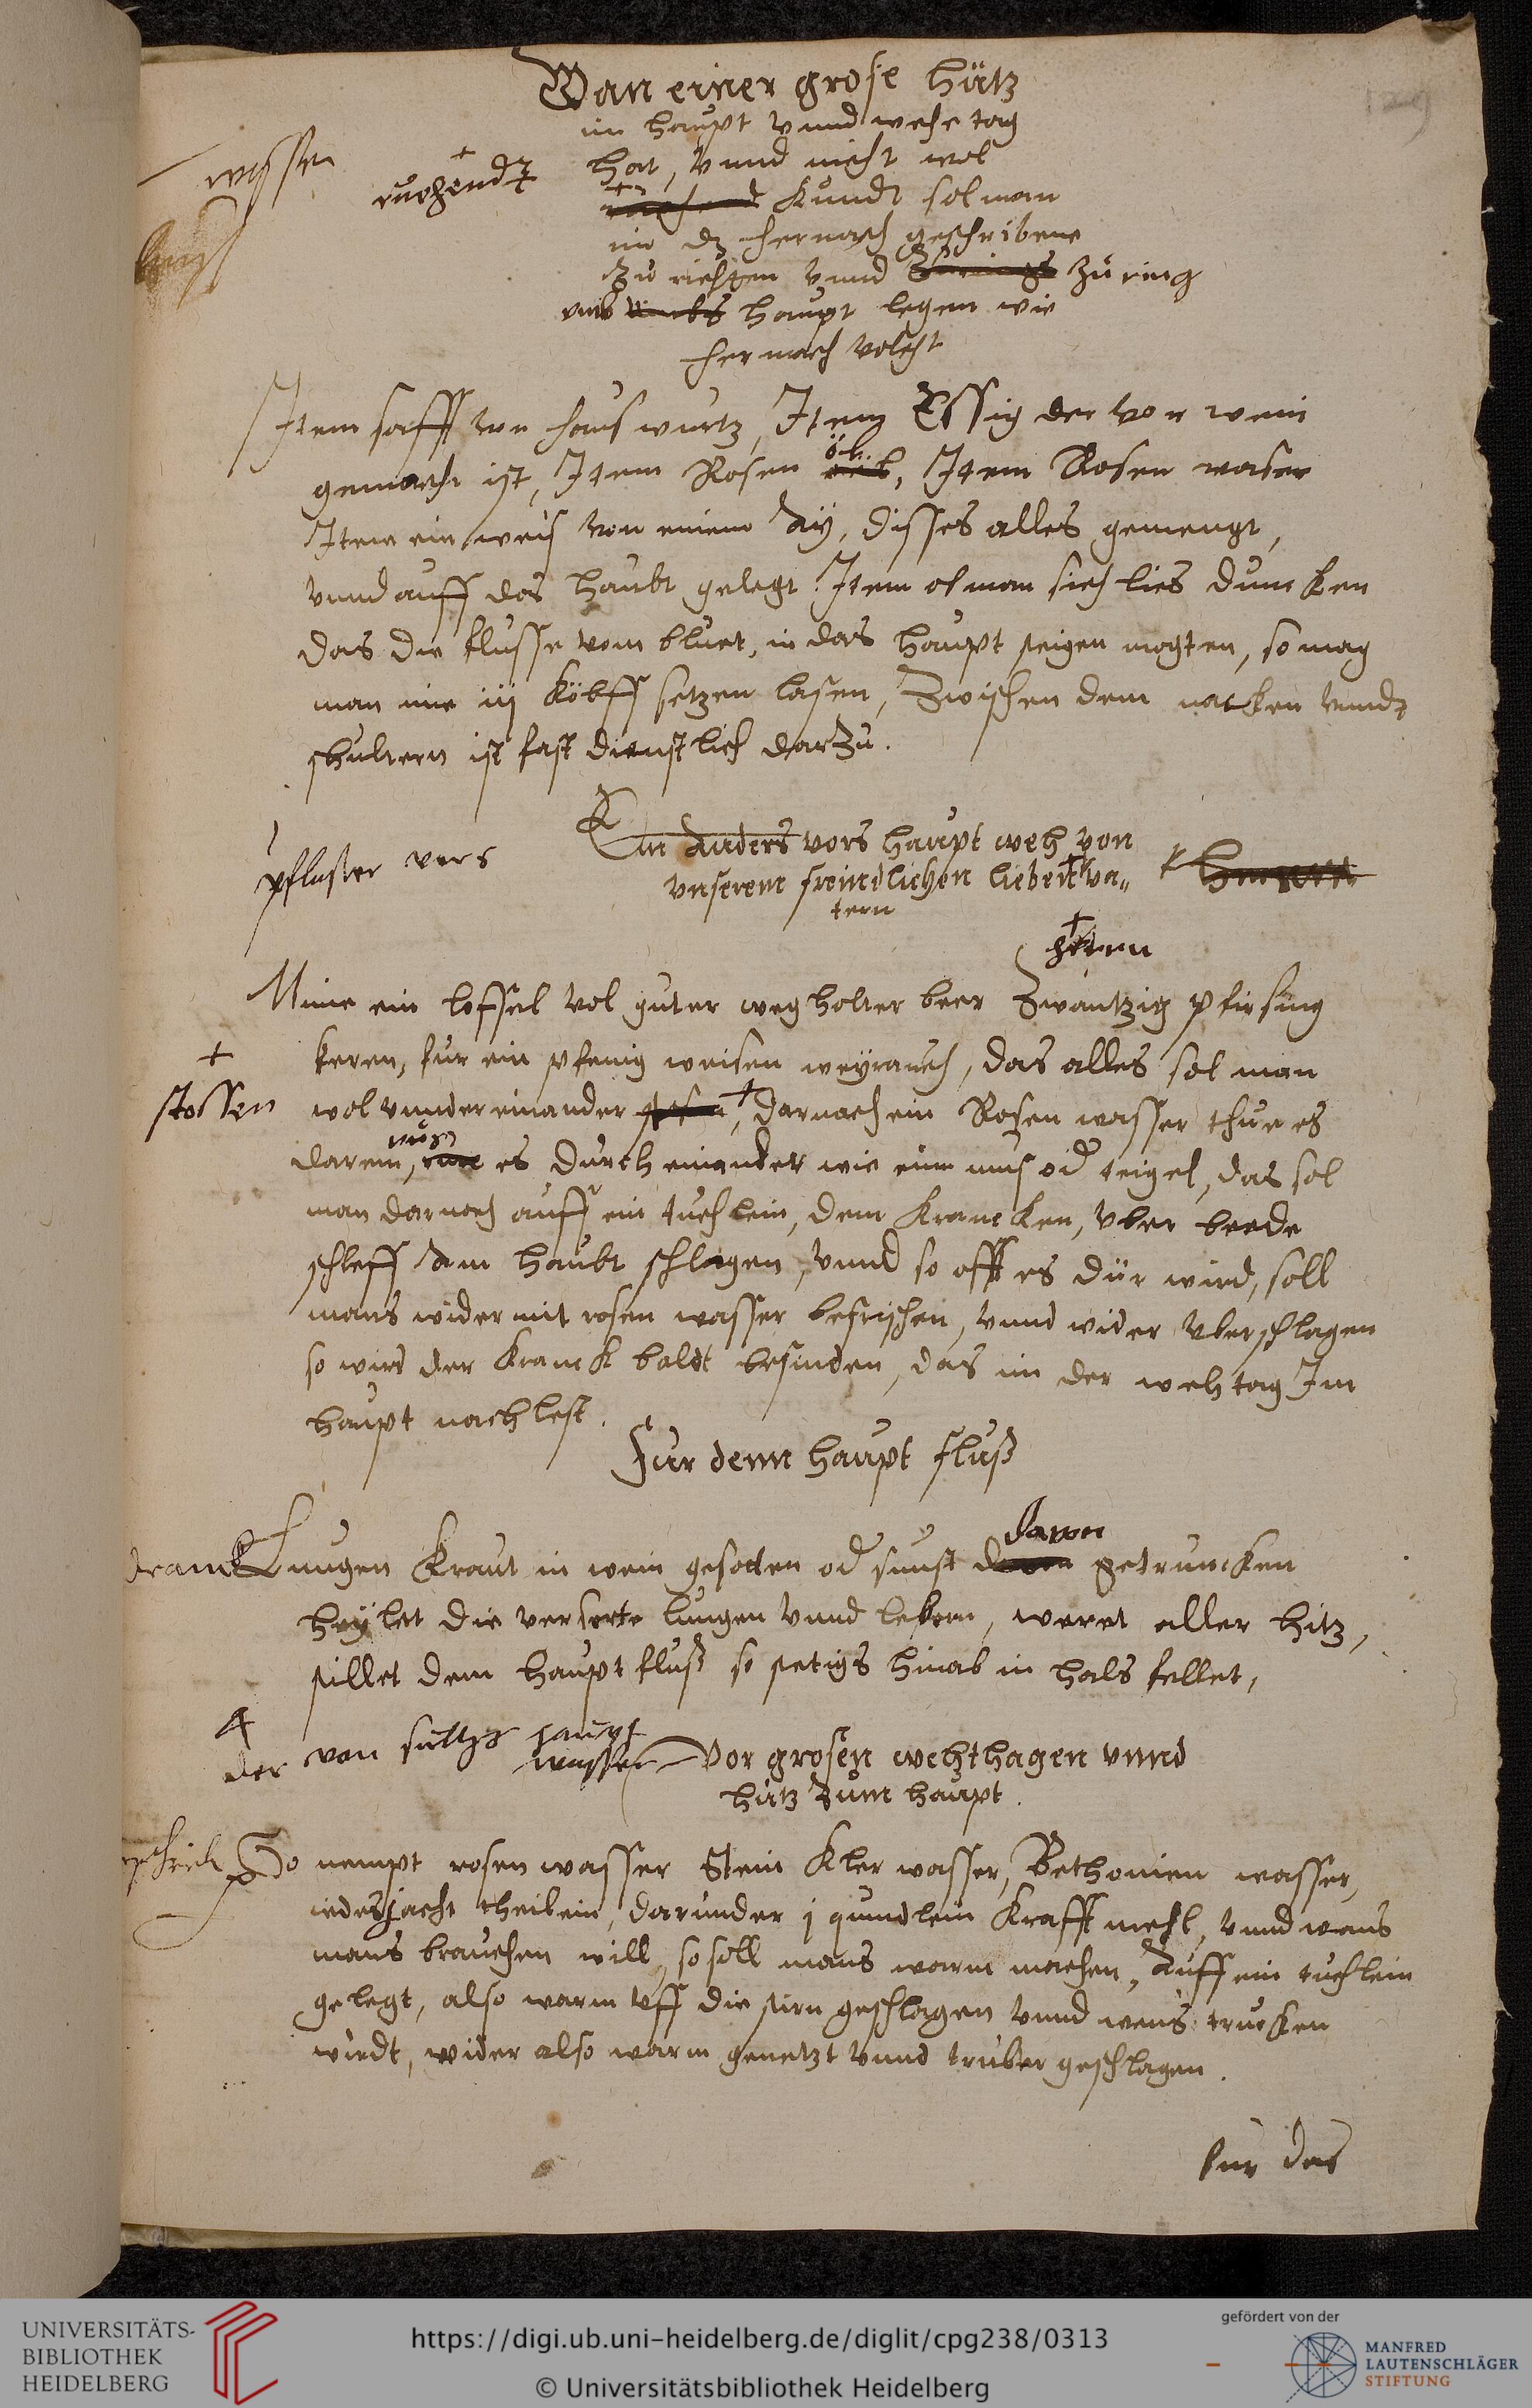 Wan einer grose hütz
im haupt vnnd wehe tag
hat, vnnd nicht wol
ruehendt
kundt sol man
im dz hernach geschribene
zu richten vnnd zu ring
vmb haupt legen wie
hernach volcht
Item safft von hauswurtz, Item Essig der von wein
gemacht ist, Item Rosen öl, Item Rosen waser
Item ein weis von einem Ay, disses alles gemengt,
vnnd auff das haubt gelegt. Item ob man sich lies duncken
das die flusse vom bluet, in das haupt steigen mogten, so mag
man im iij köbff setzen lasen, Zwischen dem nacken vnndt
schultern ist fast dienstlich darzu.
pflaster vors
Ein Anders vors haupt weh von
vnserem freindlichen lieben va„
tern
hern
Nime ein loffsel vol guter wegholter beer Zwantzig pfirsing
keren, fur ein pfenig weisen weyrauch, das alles sol man
stossen
wol vnnder einander darnach ein Rosen wasser thue es
darein, es durch einander wie ein mus od teigel, das sol
man darnach auff ein tuchlein, dem krancken, vber beede
schleff am haubt schlagen, vnnd so offt es dür wird, soll
mans wider mit rosen wasser befrischen, vnnd wider vberschlagen
so wird der kranck baldt befinden, das im der wehtag Im
haupt nachlest.
Fur denn haupt fluß
dranck
Lungen kraut in wein gesotten od sunst davon getruncken
heylet die verserte lungen vnnd lebern, weret aller hitz,
stillet dem haupt fluß so stetigs hinab in hals fellet,
der von sultz haupt
wasser
Vor grosen wehthagen vnnd
hitz Zum haupt.
So nempt rosen wasser Stein kler wasser, Bethonien wasser,
iedes j acht theil ein, darunder j quindlein krafft mehl, vnnd wans
mans brauchen will, so soll mans warm machen, Auff ein tuchlein
gelegt, also warm vff die stirn geschlagen vnnd wens trucken
wirdt, wider also warm genetzt vnnd truber geschlagen.
Fur das
UNIVERSITÄTS-
BIBLIOTHEK
HEIDELBERG
https://digi.ub.uni-heidelberg.de/diglit/cpg238/0313
© Universitätsbibliothek Heidelberg
gefördert von der
MANFRED
LAUTENSCHLÄGER
STIFTUNG